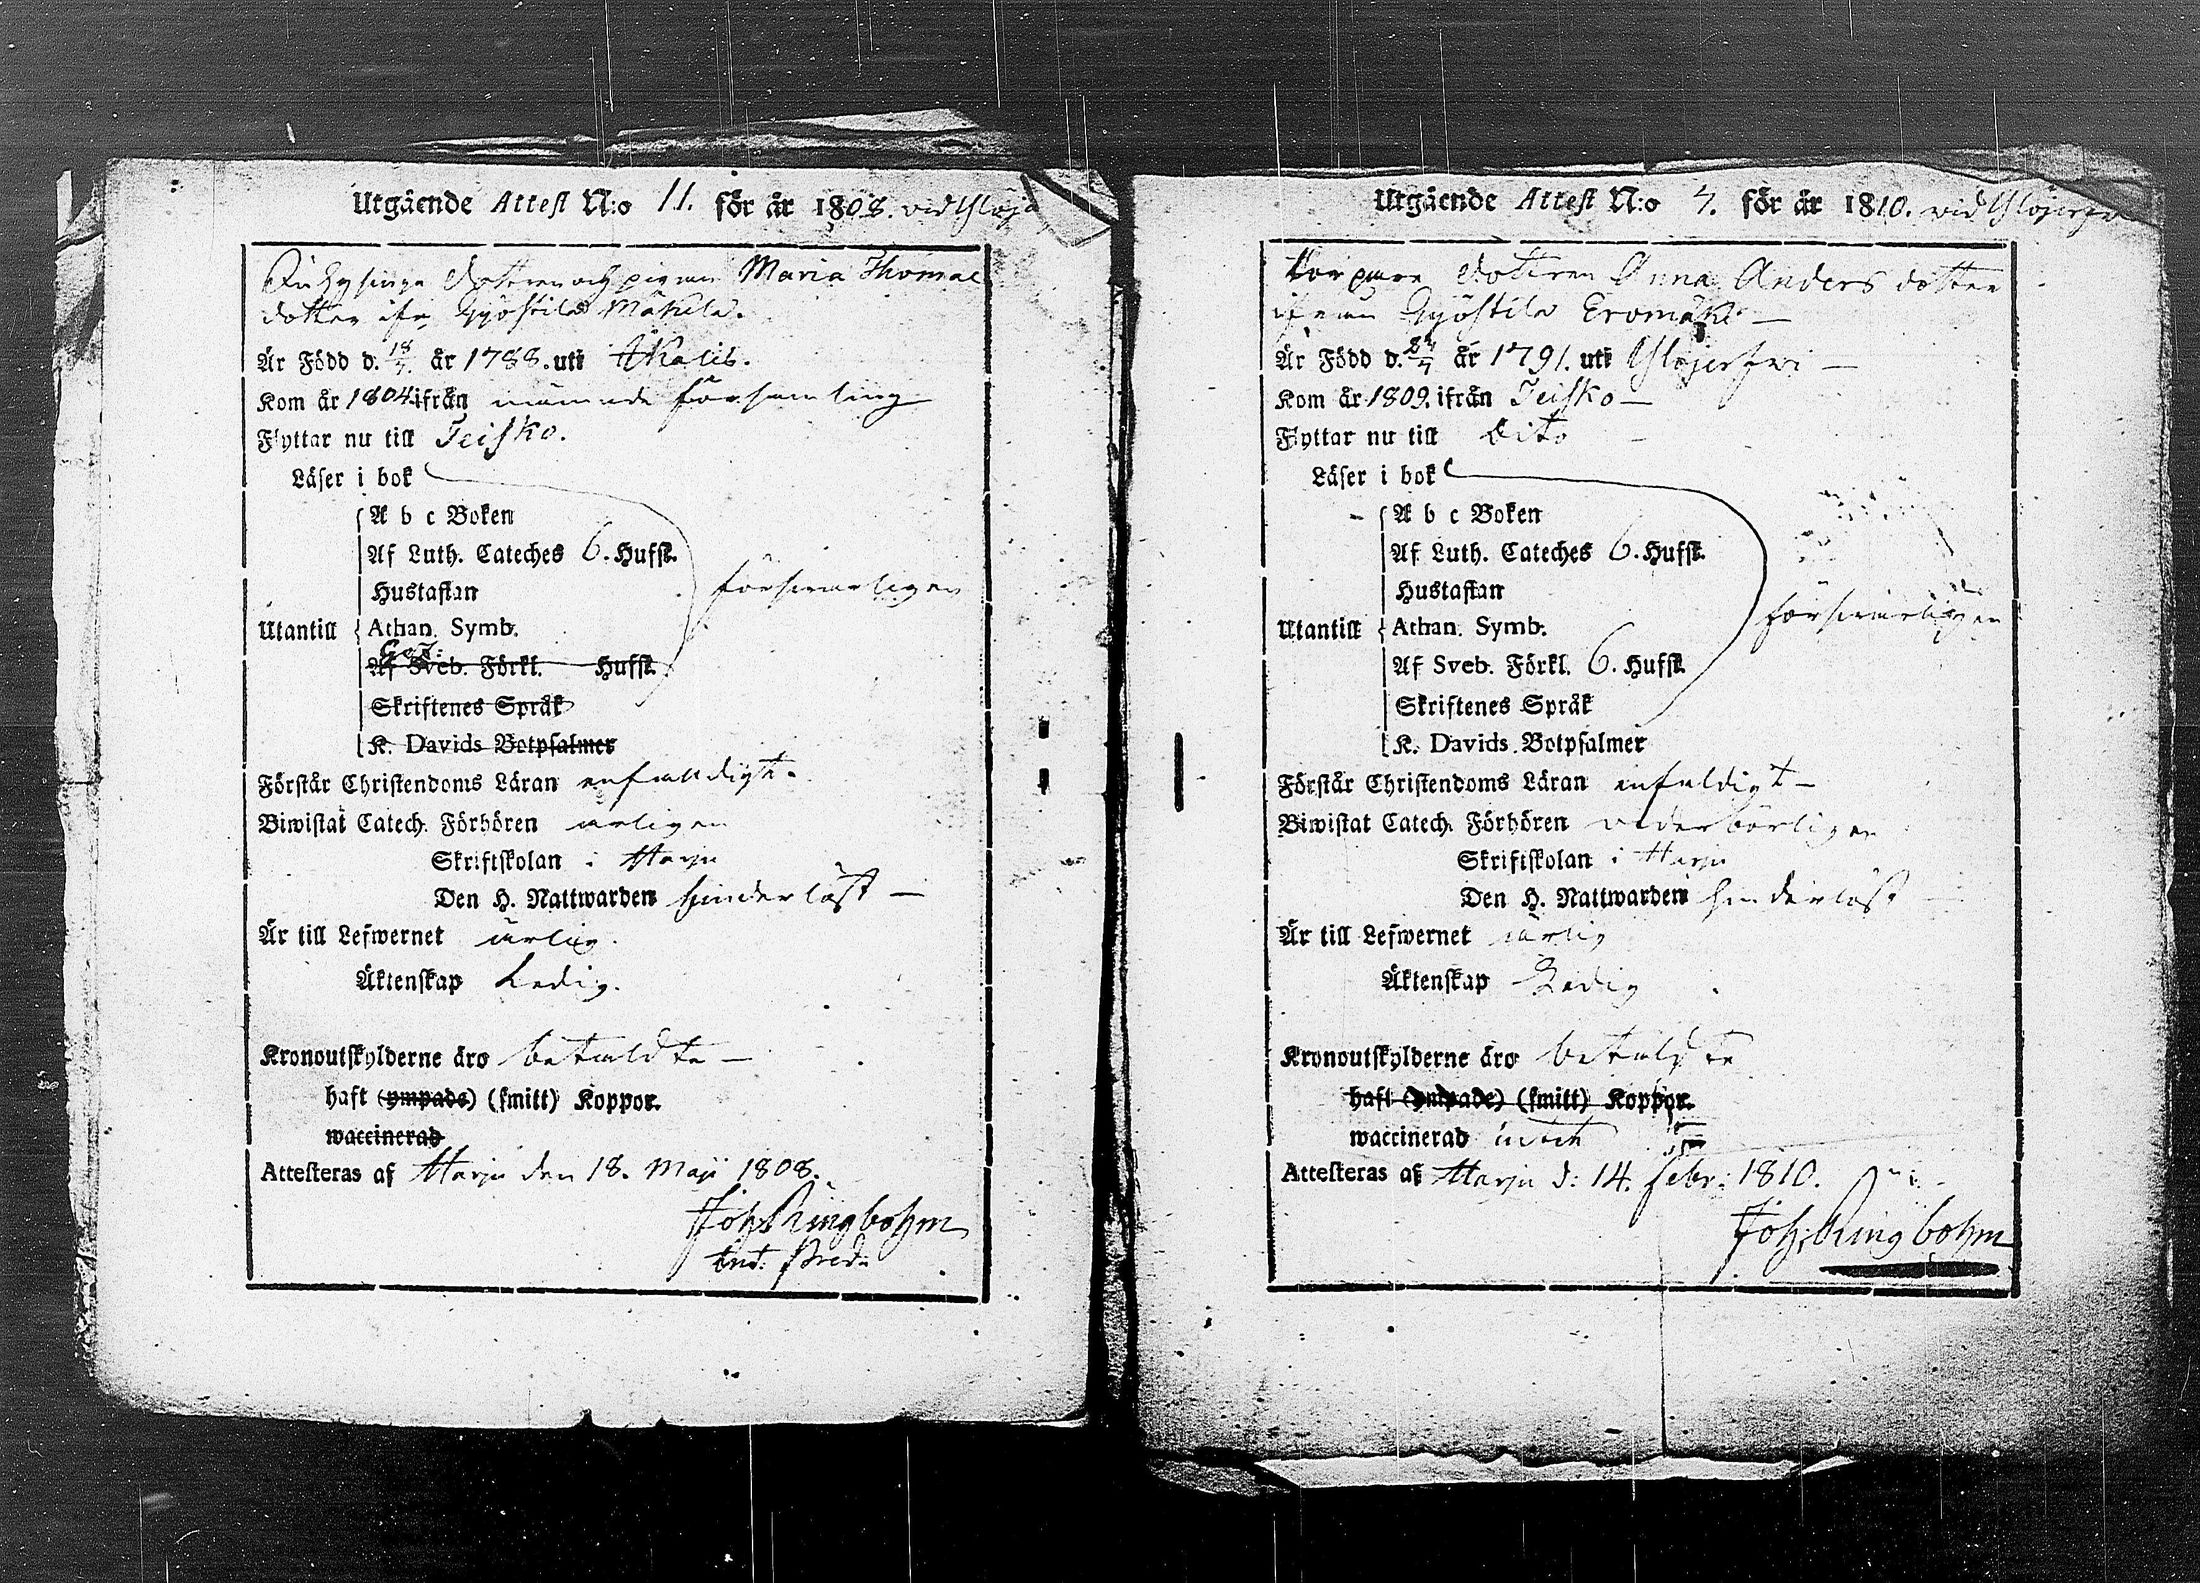 Utgående Attest N:o 11. för år 1808. vid Ylöjä
dotteren och pigan Maria Thomae
dotter ifr. Gyöstilä Mäkelä.
Är Född d. 18/7. år 1788. uti Akalis.
Kom år 1804. ifrån nämnde församling
Flyttar nu till Teisko.
Läser i bok
A b c Boken
Af Luth. Cateches 6. Hufst.
Hustaflan
försvarligen
Utantill Athan. Symb.
Af Sveb. Förkl. Hufst.
Skriftenes Språk
K. Davids Botpsalmer
Förstår Christendoms Läran enfaldigt.
Biwistat Catech. Förhören årligen
Skriftskolan i Harju
Den H. Nattwarden hinderlöst —
Är till Lefwernet ärlig.
Äktenskap Ledig.
Kronoutskylderne äro betaldte —
haft (ympade) (smitt) Koppor.
waccinerad
Attesteras af Harju den 18. Maji 1808.
Joh. Ringbohm
Utgående Attest N:o 7. för år 1810. vid Ylöjerfvi
Torpare dotteren Anna Anders dotter
ifrån Gyöstilä Eromäki —
Är Född d. år 1791. uti Ylöjerfvi —
Kom år 1809. ifrån Teisko —
Flyttar nu till dito —
Läser i bok
A b c Boken
Af Luth. Cateches 6. Hufst.
Hustaflan
försvarligen
Utantill Athan. Symb.
Af Sveb. Förkl. 6. Hufst.
Skriftenes Språk
K. Davids Botpsalmer
Förstår Christendoms Läran enfaldigt —
Biwistat Catech. Förhören vederbörligen
Skriftskolan i Harju
Den H. Nattwarden hinderlöst —
Är till Lefwernet ärlig
Äktenskap Ledig
Kronoutskylderne äro betaldte
haft (ympade) (smitt) Koppor.
waccinerad
Attesteras af Harju d: 14. febr: 1810.
Joh: Ringbohm